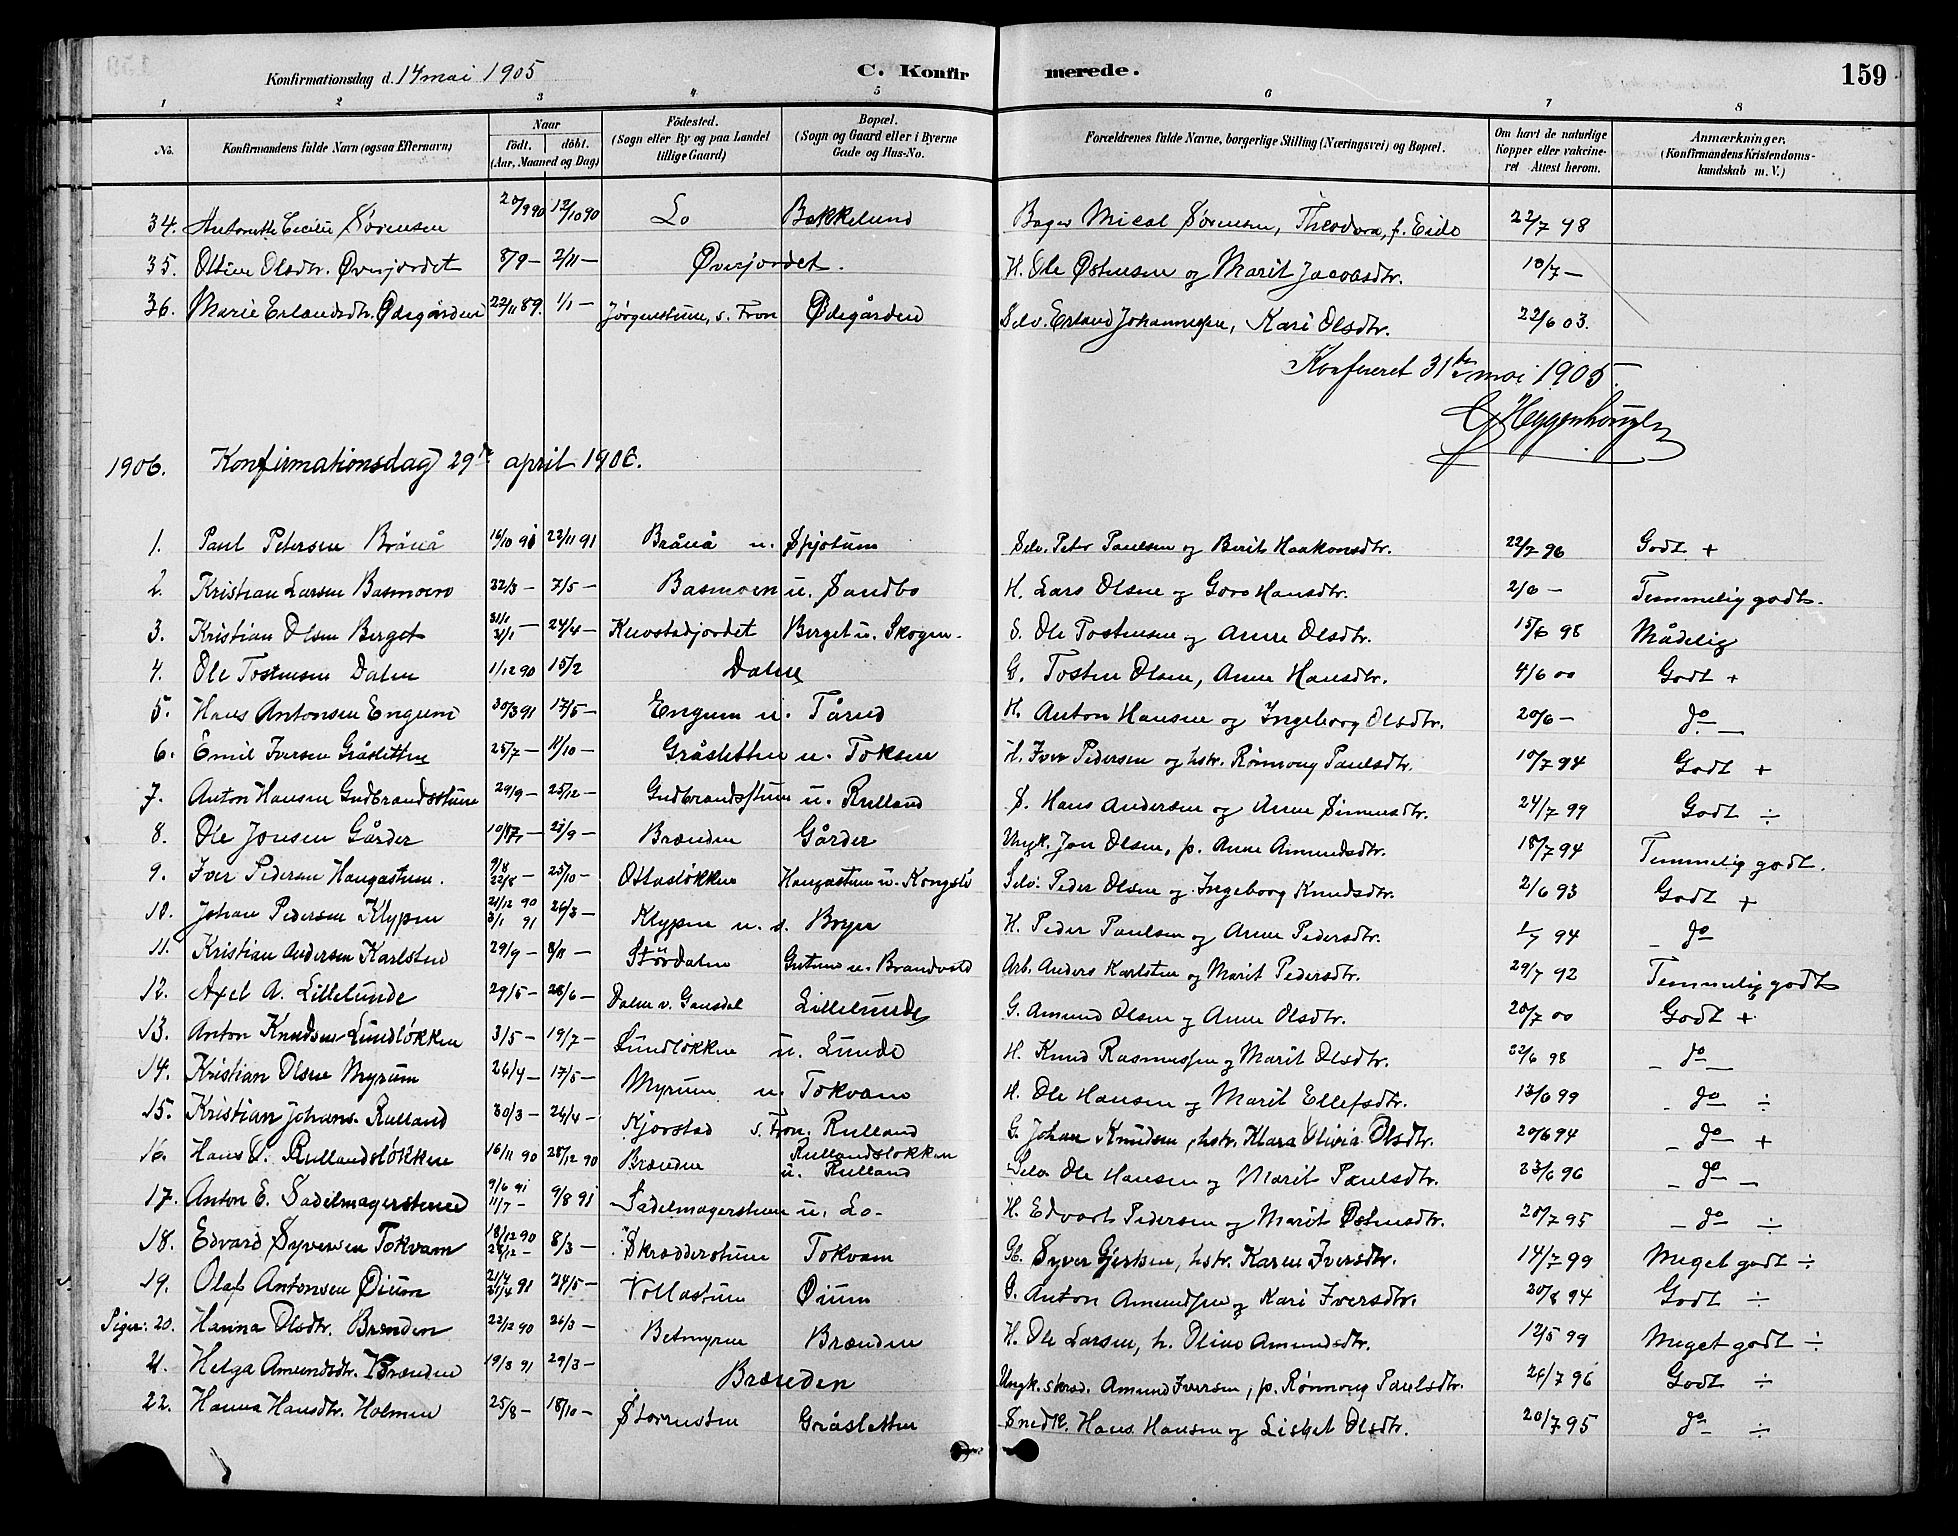 Konfirmationsdag d. 14 mai 1905 C. Konfirmerede. 159
1 2 3 4 5 6 7 8
No. Konfirmandens fulde Navn (ogsaa Efternavn) Naar födt. döbt. (Aar, Maaned og Dag) Födested. (Sogn eller By og paa Landet tillige Gaard) Bopæl. (Sogn og Gaard eller i Byerne Gade og Hus-No. Forældrenes fulde Navne, borgerlige Stilling (Næringsvei) og Bopæl. Om havt de naturlige Kopper eller vakcineret Attest herom. Anmærkninger. (Konfirmandens Kristendomskundskab m. V.)
34. Antonette Cecilie Sørensen 20/9 90 12/10 90 Lo Bakkelund Bager Mical Sørensen, Theodora, f. Eide 22/7 98
35. Ottine Olsdtr. Øversjordet 8/9 — 2/11 — Øversjordet. H. Ole Østensen og Marit Jacobsdtr. 10/7 —
36. Marie Erlandsdtr. Ødegården 22/11 89. 1/1 — Jörgenstuen, s. Fron Ødegården Selv. Erland Johannessen, Kari Olsdtr. 22/6 03.
Konfereret 31te mai 1905.
Heggenhougen
1906. Konfirmationsdag 29de april 1906.
1. Paul Petersen Brånå 16/10 91 22/11 91 Brånå u. Spjotum Selv. Peter Paulsen og Berit Haakonsdtr. 22/7 96 Godt +
2. Kristian Larsen Basmoen 22/3 — 7/5 — Basmoen u. Sandbo H. Lars Olsen og Goro Hansdtr. 2/6 — Temmelig godt.
3. Kristian Olsen Berget 31/1 — 24/4 — Berget u. Skogen. S. Ole Tostensen og Anne Olsdtr. 15/6 98 Mådelig
4. Ole Tostensen Dalen 1/12 90 15/2 Dalen G. Tosten Olsen, Anne Hansdtr. 4/6 00 Godt +
5. Hans Antonsen Engum 30/3 91 17/5 — Engum u. Tårud H. Anton Hansen og Ingeborg Olsdtr. 20/6 — do —
6. Emil Iversen Gråsletten 25/7 — 11/10 — Gråsletten u. Toksen H. Iver Pedersen og hstr. Rønnoug Paulsdtr. 10/7 94 Godt +
7. Anton Hansen Gudbrandsstuen 29/9 — 25/12 — Gudbrandsstuen u. Rulland S. Hans Andersen og Anne Simensdtr. 24/7 99 Godt ÷
8. Ole Jonsen Gårder 21/9 — Brænden Gårder Ungk. Jon Olsen, p. Anne Amundsdtr. 18/7 94 Temmelig godt.
9. Iver Pedersen Haugastuen. 22/8 — 25/10 — Ottasløkken Haugastuen u. Kongsli Selv. Peder Olsen og Ingeborg Knudsdtr. 2/6 93 Godt +
10. Johan Pedersen Klypen 21/12 90 3/1 91 26/3 — Klypen u. s. Bryn H. Peder Paulsen og Anne Pedersdtr. 94 — do
11. Kristian Andersen Karlsten 29/9 — 8/11 — Stordalen u. Brandvold Arb. Anders Karlsten og Marit Pedersdtr. 29/7 92 Temmelig godt
12. Axel A. Lillelunde 29/5 — 28/6 — Dalen v. Gausdal Lillelunde G. Amund Olsen og Anne Olsdtr. 20/7 00 Godt +
13. Anton Knudsen Lundløkken 3/5 — 19/7 — Lundløkken u. Lunde H. Knud Rasmussen og Marit Olsdtr. 22/6 98 — do —
14. Kristian Olsen Myrum 26/4 — 17/5 — Myrum u. Tokvam H. Ole Hansen og Marit Ellefsdtr. 13/6 99 — do ÷
15. Kristian Johans. Rulland 30/3 — 26/4 — Kjorstad s. Fron. Rulland G. Johan Knudsen, hstr. Klara Olivia Olsdtr. 20/6 94 — do +
16. Hans O. Rullandsløkken 16/11 90 28/12 90 Brænden Rullandsløkken u. Rulland Selv. Ole Hansen og Marit Paulsdtr. 23/6 96 — do —
17. Anton E. Sadelmagerstuen 9/6 91 11/7 — 9/8 91 Sadelmagerstuen u. Lo— H. Edvart Pedersen og Marit Østensdtr. 20/7 95 — do ÷
18. Edvard Syversen Tokvam 18/12 90 28/12 — 8/3 — Skrædderstuen Tokvam Gb. Syver Gjertsen, hstr. Karen Iversdtr. 14/7 99 Meget godt ÷
19. Olaf Antonsen Øium 21/4 91 24/5 — Vollastuen Øium S. Anton Amundsen og Kari Iversdtr. 20/8 94 Godt ÷
Piger: 20. Hanna Olsdtr. Brænden 22/12 90 26/3 — Betmyren Brænden H. Ole Larsen, h. Oline Amundsdtr. 12/5 99 Meget godt ÷
21. Helga Amundsdtr. Brænden 19/3 91 29/3 — Brænden Ungk. skræd. Amund Iversen, p. Rønnoug Paulsdtr. 26/7 96 Godt ÷
22. Hanna Hansdtr. Holmen 25/8 — 18/10 — Storrusten Gråsletten Snedk. Hans Hansen og Lisbet Olsdtr. 20/7 95 do ÷